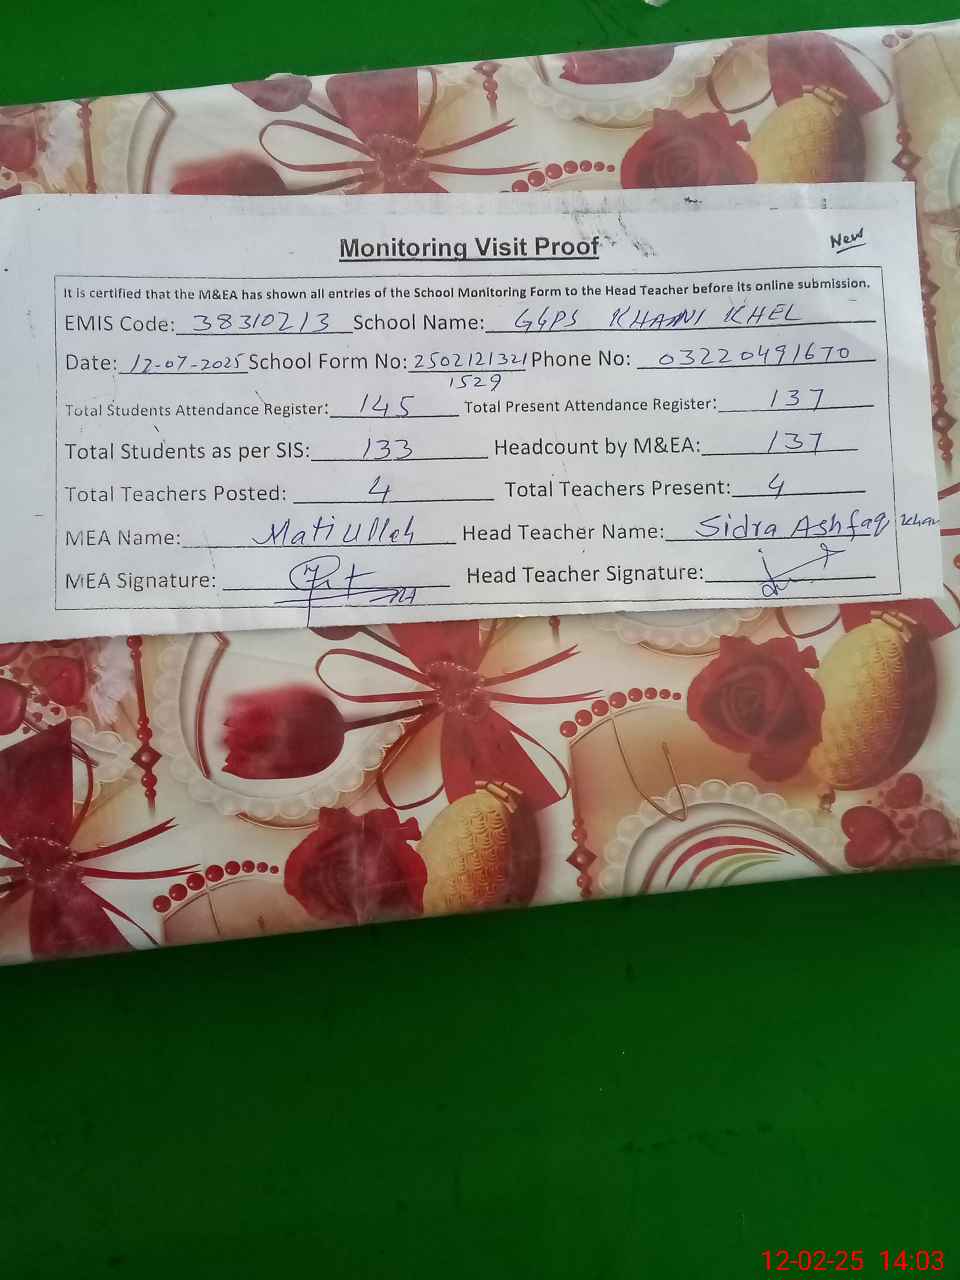 Monitoring Visit Proof
New
It is certified that the M&EA has shown all entries of the School Monitoring Form to the Head Teacher before its online submission.
EMIS Code: 38310213 School Name: GGPS KHANI KHEL
Date: 12-07-2025 School Form No: 2502121321 Phone No: 03220491670
1529
Total Students Attendance Register: 145 Total Present Attendance Register: 137
Total Students as per SIS: 133 Headcount by M&EA: 137
Total Teachers Posted: 4 Total Teachers Present: 4
MEA Name: Matiulleh Head Teacher Name: Sidra Ashfaq Khan
MEA Signature: Head Teacher Signature:
12-02-25 14:03